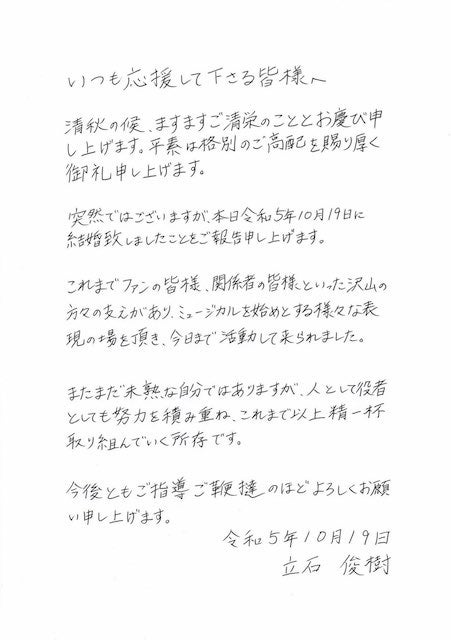 いつも応援して下さる皆様へ
清秋の候、ますますご清栄のこととお慶び申
し上げます。平素は格別のご高配を賜り厚く
御礼申し上げます。
突然ではございますが、本日令和5年10月19日に
結婚致しましたことをご報告申し上げます。
これまでファンの皆様、関係者の皆様といった沢山の
方々の支えがあり、ミュージカルを始めとする様々な表
現の場を頂き、今日まで活動して来られました。
まだまだ未熟な自分ではありますが、人として役者
としても努力を積み重ね、これまで以上精一杯
取り組んでいく所存です。
今後ともご指導ご鞭撻のほどよろしくお願
い申し上げます。
令和5年10月19日
立石 俊樹